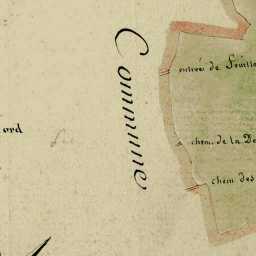 Commune
entrée de Feuillo
ord
chem. de la De
chem des